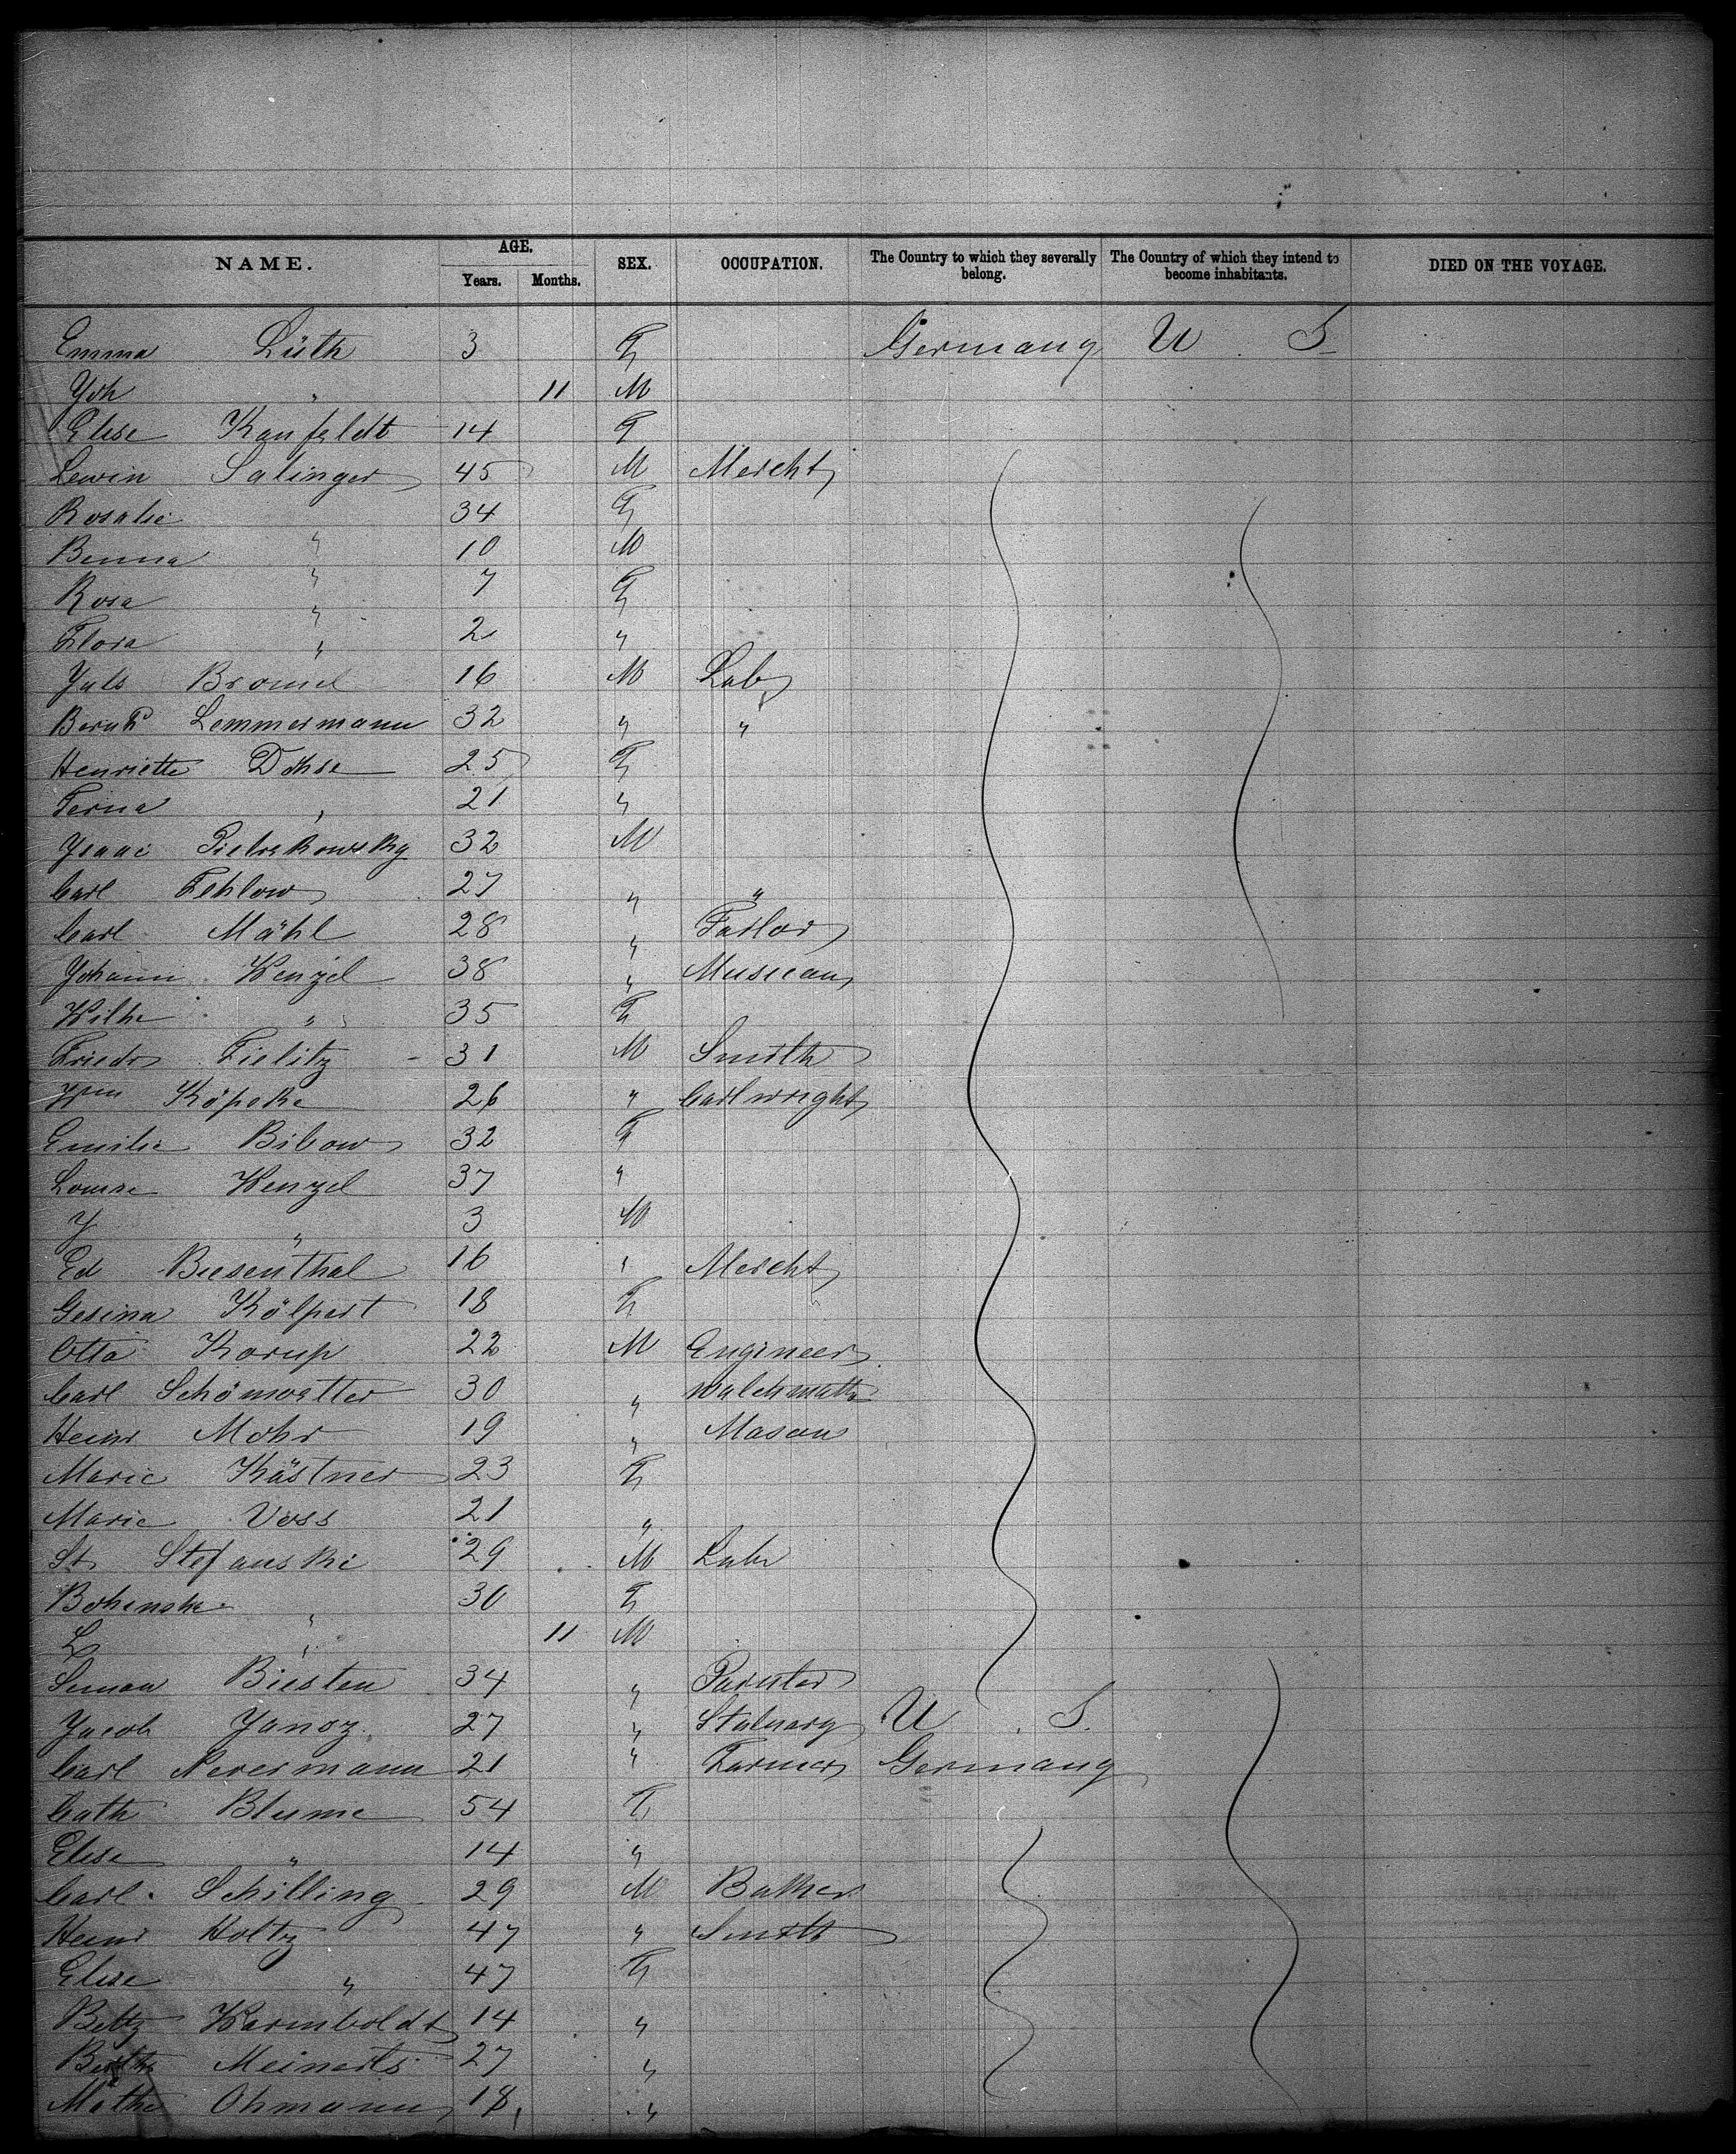 NAME. AGE. SEX. OCCUPATION. The Country to which they severally belong. The Country of which they intend to become inhabitants. DIED ON THE VOYAGE.
Years. Months.
Emma Lüth 3 F Germany U. S.
Joh " 11 M
Elise Kanfeldt 14 F
Lewin Salinger 45 M Mercht
Rosalie " 34 F
Benna " 10 M
Rosa " 7 F
Flora " 2 "
Juls 16 M Lab
Bernhd Lemmermann 32 " "
Henriette Döhse 25 F
" 21 "
Isaac Pietrskowsky 32 M
Carl Fehlow 27 " "
Carl Mähl 28 " Tailor
Johann Wenzel 38 " Musican
Wilhe " 35 F
Friedr Tielitz 31 M Smith
Wm Köpcke 26 " Cartwright
Emilie Bibow 32 F
Louise Wenzel 37 "
J " 3 M
Ed Biesenthal 16 " Mercht
Gesina Kölpert 18 F
Otto Korup 22 M Engineer
Carl 30 "
Heinr Mohr 19 " Mason
Marie Kästner 23 F
Marie Voss 21 "
St Stefanski 29 M Labr
" 30 F
L " 11 M
Biesten 34 " Painter
Jacob Janoz 27 " Statuary U. S.
Carl Nevermann 21 " Farmer Germany
Cath Blume 54 F
Elise " 14 "
Carl Schilling 29 M Baker
Heinr Holtz 47 " Smith
Elise " 47 F
Betty Warmboldt 14 "
Bertha Meinerts 27 "
Mathe Ohmann 18 "